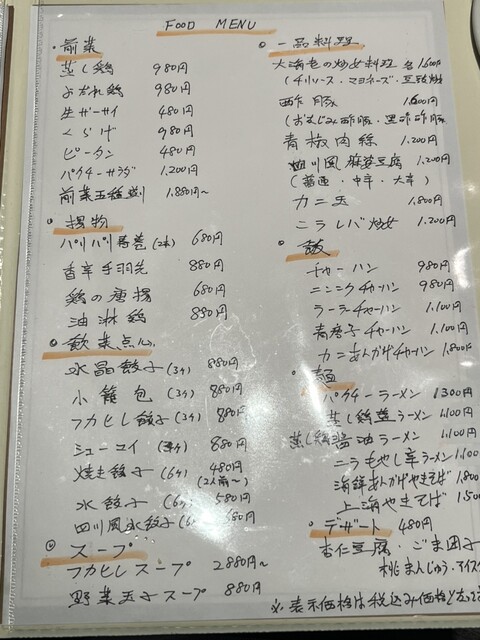 FOOD MENU
前菜
蒸し鶏 980円
よだれ鶏 980円
生ザーサイ 480円
くらげ 980円
ピータン 480円
パクチーサラダ 1.200円
前菜五種盛り 1.880円~
揚物
パリパリ春巻(2本) 680円
香辛手羽先 880円
鶏の唐揚 680円
油淋鶏 880円
飲茶点心
水晶餃子(3ケ) 880円
小籠包(3ケ) 880円
フカヒレ餃子(3ケ) 880円
シューマイ 880円
焼き餃子(6ケ) 480円
(2人前~)
水餃子(6ケ) 580円
四川風水餃子(6 680円
スープ
フカヒレスープ 2880円~
野菜玉子スープ 880円
一品料理
大海老の炒め料理 各1.600円
(チリソース・マヨネーズ・
酢豚 1.600円
(おもじみ酢豚・黒酢酢豚
青椒肉絲 1.200円
四川風麻婆豆腐 1.200円
(普通・中辛・大辛)
カニ玉 1.800円
ニラレバ炒め 1.200円
飯
チャーハン 980円
ニンニクチャーハン 980円
ラーラーチャーハン 1.100円
青唐子チャーハン 1.100円
カニあんかけチャーハン 1.800円
麺
パクチーラーメン 1300円
蒸し鶏塩ラーメン 1.100円
蒸し鶏醤油ラーメン 1.100円
ニラもやし辛ラーメン 1.100
海鮮あんかけやきそば 1.800
上海やきそば 1.500
デザート 480円
杏仁豆腐・ごま団子
桃まんじゅう・アイス
※表示価格は税込み価格となって